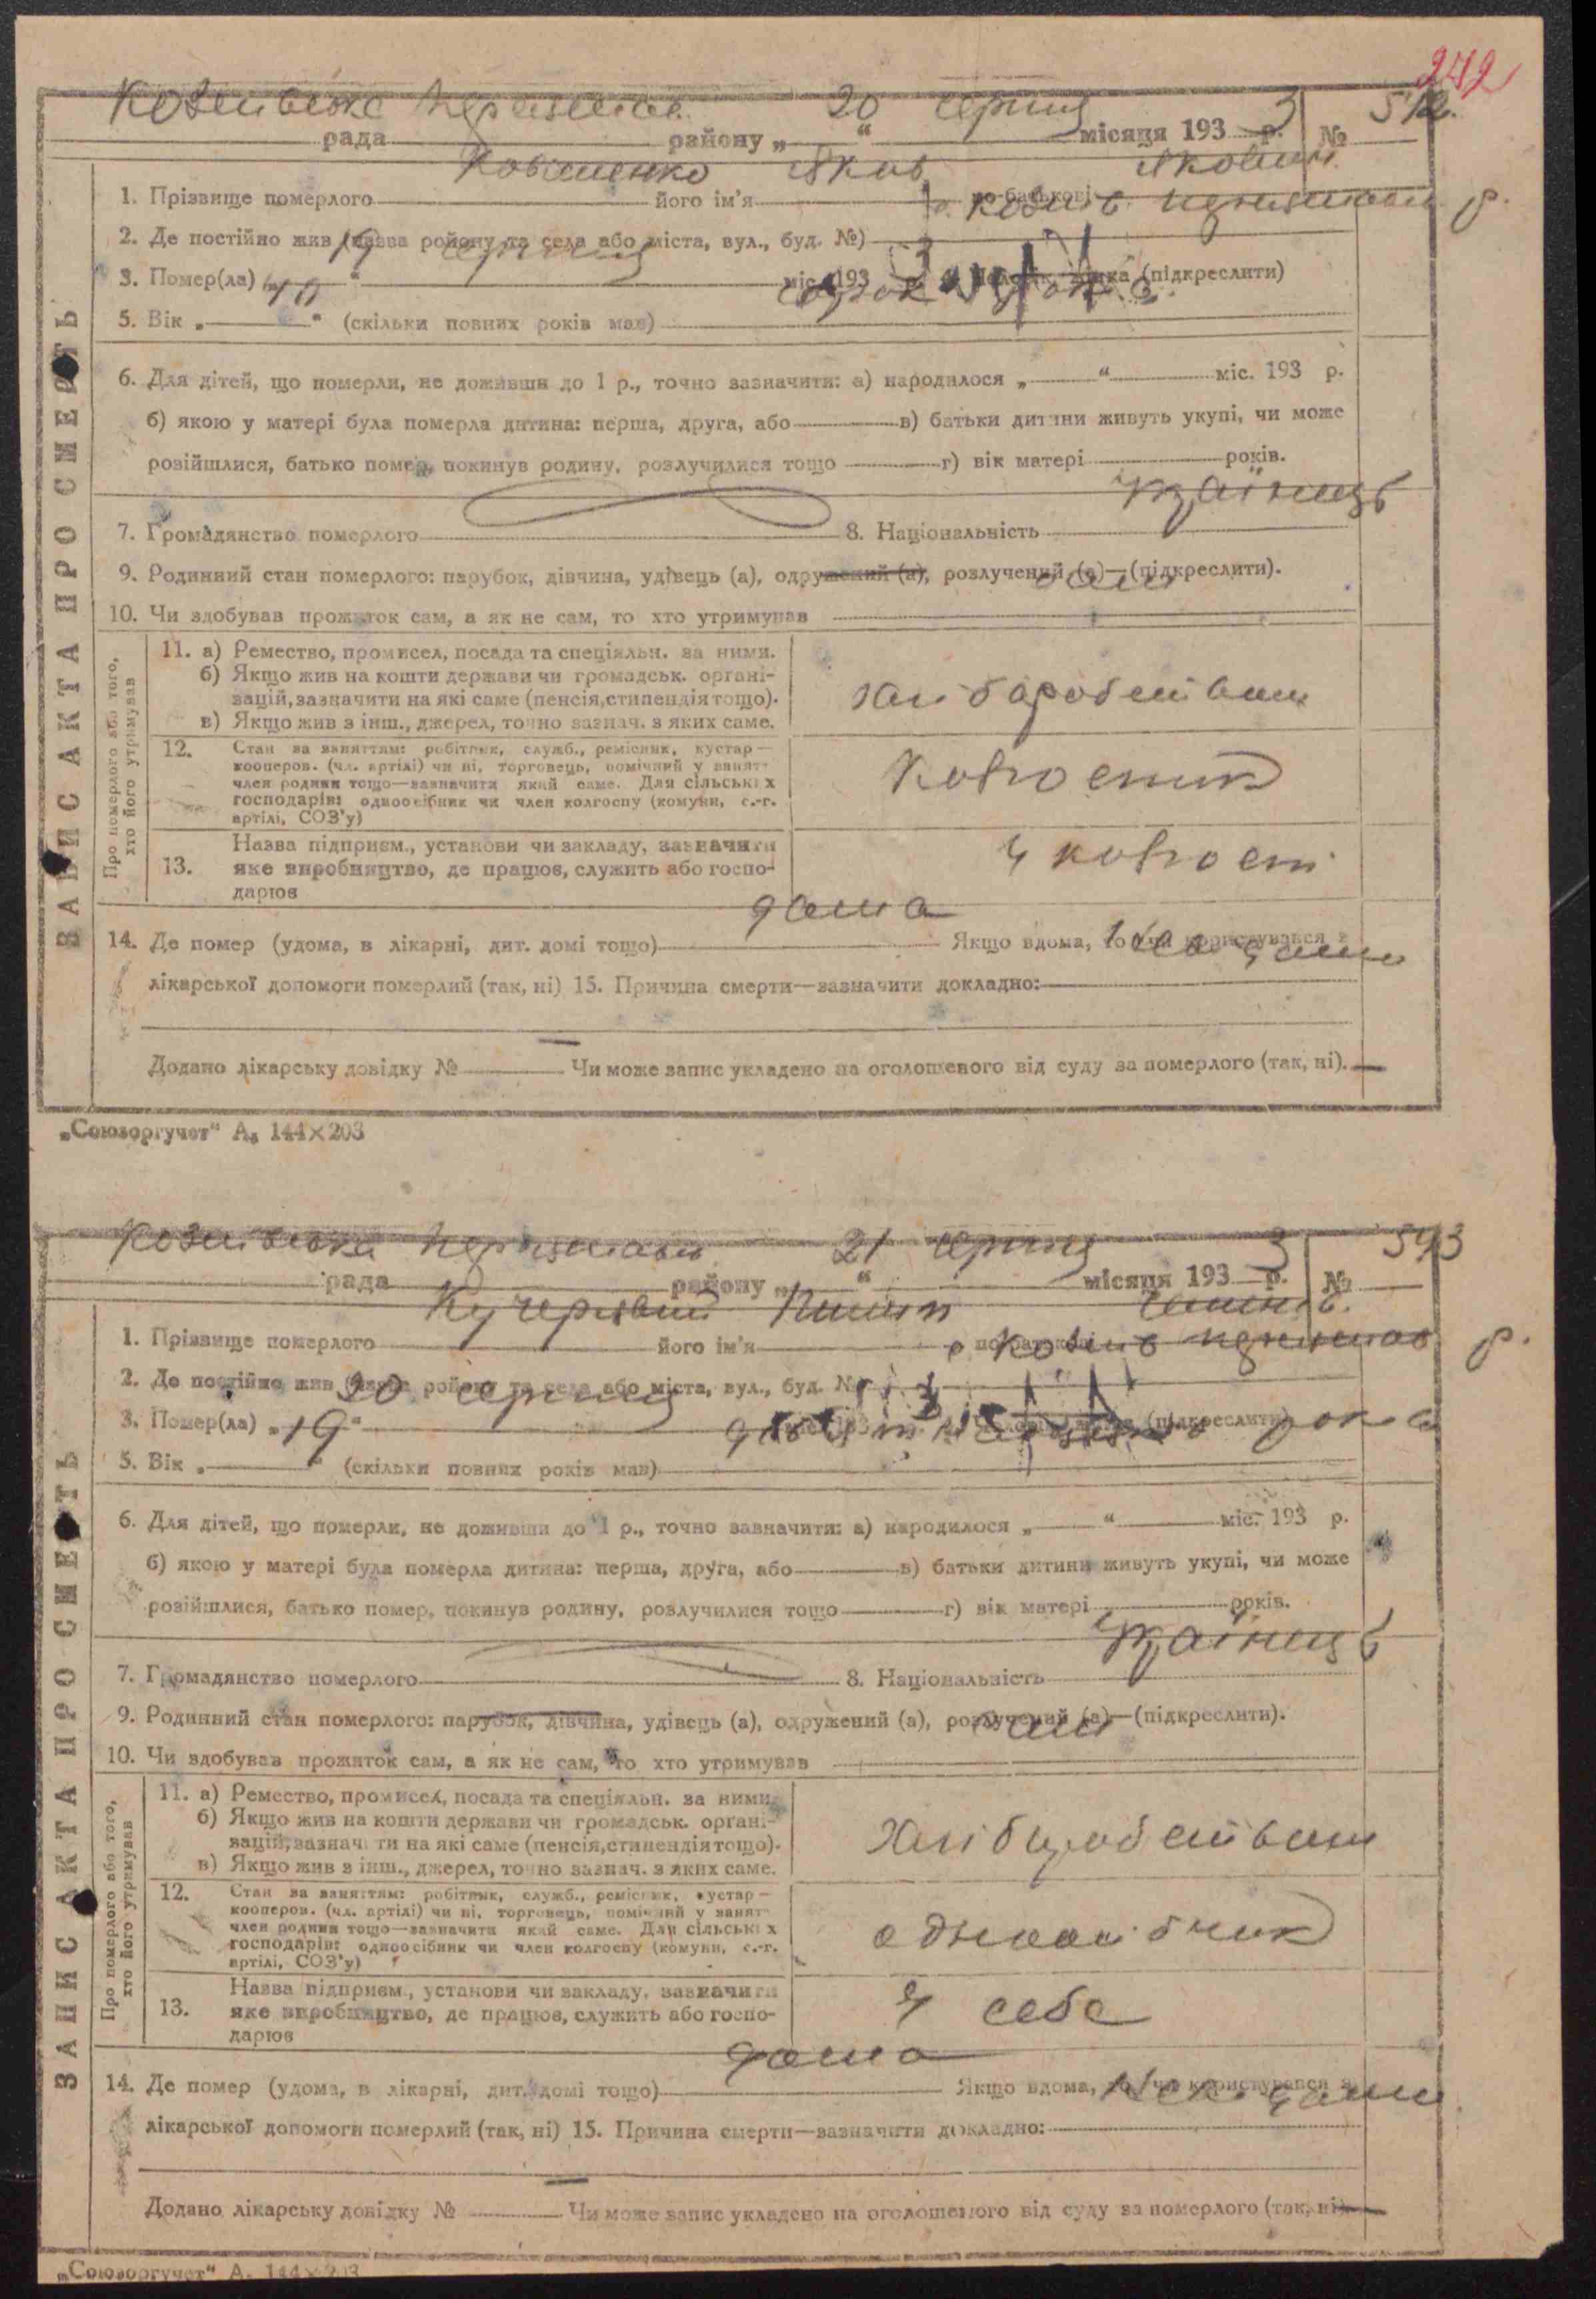 242
20 серпня 3 512.
рада району „ “ місяця 193 р. №
Яков
1. Прізвище померлого його ім'я по батькові
2. Де постійно жив (назва району та села або міста, вул., буд. №) р.
19 серпня 3
3. Помер(ла) „ “ міс. 193 (підкреслити)
40 сорок років
5. Вік „ “ (скільки повних років мав)
6. Для дітей, що померли, не доживши до 1 р., точно зазначити: а) народилося „ “ міс. 193 р.
б) якою у матері була померла дитина: перша, друга, або в) батьки дитини живуть укупі, чи може
розійшлися, батько помер, покинув родину, розлучилися тощо г) вік матері років.
українець
7. Громадянство померлого 8. Національність
9. Родинний стан померлого: парубок, дівчина, удівець (а), одружений (а), розлучений (а)—(підкреслити).
сам
10. Чи здобував прожиток сам, а як не сам, то хто утримував
ЗАПИС АКТА ПРО СМЕРТЬ
Про померлого або того,
хто його утримував
11. а) Ремество, промисел, посада та спеціяльн. за ними.
б) Якщо жив на кошти держави чи громадськ. органі-
зацій, зазначити на які саме (пенсія, стипендія тощо).
в) Якщо жив з інш., джерел, точно зазнач. з яких саме.
хліборобством
12. Стан за заняттям: робітник, служб., ремісник, кустар—
кооперов. (чл. артілі) чи ні, торговець, помічний у занят.
член родини тощо—зазначити який саме. Для сільських
господарів: одноосібник чи член колгоспу (комуни, с.-г.
артілі, СОЗ'у)
колгоспник
13. Назва підприєм., установи чи закладу, зазначити
яке виробництво, де працюв, служить або госпо-
дарюв
у колгоспі
дома
14. Де помер (удома, в лікарні, дит. домі тощо) Якщо вдома, то чи користувався з
лікарської допомоги померлий (так, ні) 15. Причина смерти—зазначити докладно:
Додано лікарську довідку № Чи може запис укладено на оголошеного від суду за померлого (так, ні).
„Союзоргучет“ А₅ 144×203
21 серпня 3 513
рада району „ “ місяця 193 р. №
Кучерявий Пилип Семенов.
1. Прізвище померлого його ім'я по батькові
2. Де постійно жив (назва району та села або міста, вул., буд. №) р.
20 серпня 3
3. Помер(ла) „ “ (підкреслити)
19 дев'ятнадцять років
5. Вік „ “ (скільки повних років мав)
6. Для дітей, що померли, не доживши до 1 р., точно зазначити: а) народилося „ “ міс. 193 р.
б) якою у матері була померла дитина: перша, друга, або в) батьки дитини живуть укупі, чи може
розійшлися, батько помер, покинув родину, розлучилися тощо г) вік матері років.
українець
7. Громадянство померлого 8. Національність
9. Родинний стан померлого: парубок, дівчина, удівець (а), одружений (а), розлучений (а)—(підкреслити).
сам
10. Чи здобував прожиток сам, а як не сам, то хто утримував
ЗАПИС АКТА ПРО СМЕРТЬ
Про померлого або того,
хто його утримував
11. а) Ремество, промисел, посада та спеціяльн. за ними.
б) Якщо жив на кошти держави чи громадськ. органі-
зацій, зазначити на які саме (пенсія, стипендія тощо).
в) Якщо жив з інш., джерел, точно зазнач. з яких саме.
хліборобством
12. Стан за заняттям: робітник, служб., ремісник, кустар—
кооперов. (чл. артілі) чи ні, торговець, помічний у занят.
член родини тощо—зазначити який саме. Для сільських
господарів: одноосібник чи член колгоспу (комуни, с.-г.
артілі, СОЗ'у)
одноосібник
13. Назва підприєм., установи чи закладу, зазначити
яке виробництво, де працюв, служить або госпо-
дарюв
у себе
дома
14. Де помер (удома, в лікарні, дит. домі тощо) Якщо вдома, то чи користувався з
лікарської допомоги померлий (так, ні) 15. Причина смерти—зазначити докладно:
Додано лікарську довідку № Чи може запис укладено на оголошеного від суду за померлого (так, ні).
„Союзоргучет“ А₅ 144×203